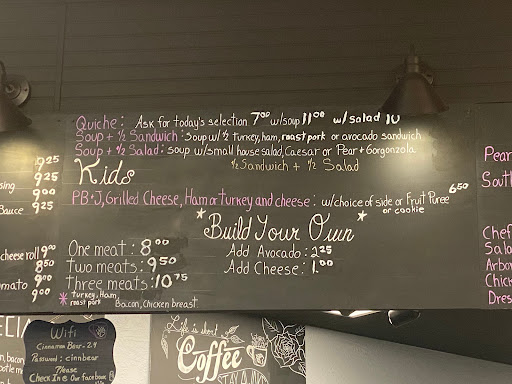 Quiche: Ask for today's selection 7⁰⁰ w/soup 11⁰⁰ w/salad 10
Soup + ½ Sandwich: Soup w/ ½ turkey, ham, roast pork or avocado sandwich
Soup + ½ Salad: soup w/small house salad, Caesar or Pear + Gorgonzola
½ Sandwich + ½ Salad
Kids
PB+J, Grilled Cheese, Ham or Turkey and cheese: w/choice of side or Fruit Puree 6⁵⁰
or cookie
*Build Your Own*
Add Avocado: 2.25
Add Cheese: 1.⁰⁰
One meat: 8⁰⁰
Two meats: 9⁵⁰
Three meats: 10⁷⁵
* turkey, Ham,
roast pork Bacon, Chicken breast
9²⁵
9²⁵
sing 9⁰⁰
Sauce 9²⁵
cheese roll 9⁰⁰
8⁵⁰
mato 9⁰⁰
9⁰⁰
Pear
Sout
Chef
Sala
Arbo
Chick
Dres
WiFi
Cinnamon Bear-2.4
Password: cinnbear
Please
Check In @ Our Facebook
Life is short
Coffee